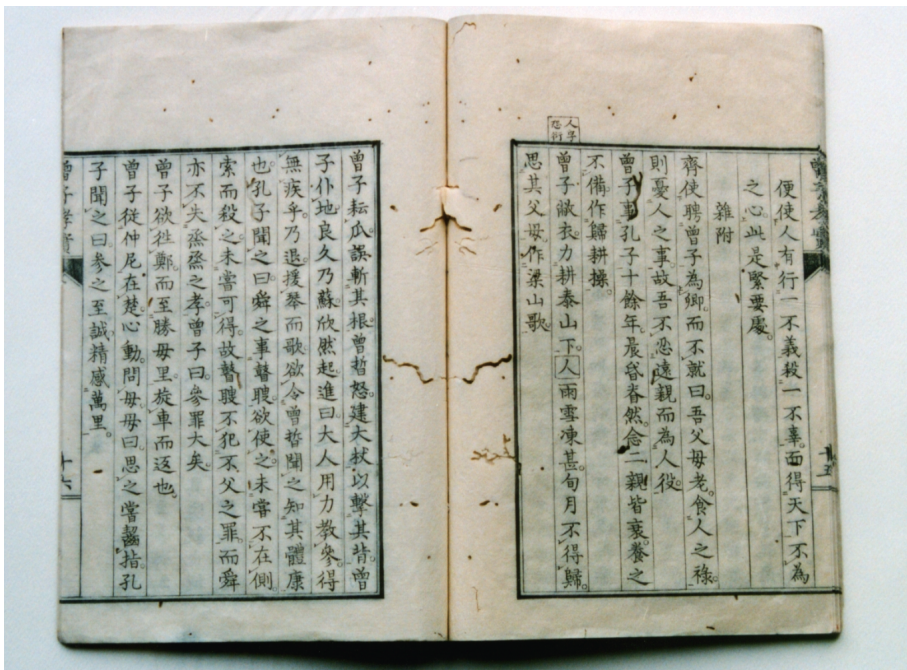 人字
恐衍
便使人有行一不義殺一不辜。而得天下不為
之心此是緊要處。
雜附
齊使聘曾子為卿。而不就曰。吾父母老。食人之祿。
則憂人之事。故吾不忍遠親而為人役。
曾子事孔子十餘年。晨昏眷然。念二親皆衰。養之
不備。作歸耕操。
曾子敝衣力耕泰山下。人雨雪凍甚。旬月不得歸
思其父母。作梁山歌。
十五
曾子耘瓜。誤斬其根。曾晳怒建大杖以擊其背。曾
子仆地。良久乃蘇。欣然起進曰。大人用力教參得
無疾乎。乃退援琴而歌。欲令曾晳聞之知其體康
也。孔子聞之曰。舜之事瞽瞍。欲使之。未嘗不在側
索而殺之。未嘗可得。故瞽瞍不犯不父之罪。而舜
亦不失烝烝之孝。曾子曰。參罪大矣。
曾子欲徃鄭。而至勝母里。旋車而返也。
曾子従仲尼在楚。心動。問母。母曰。思之嘗齧指。孔
子聞之曰。參之至誠。精感萬里。
曾子孝實
十六